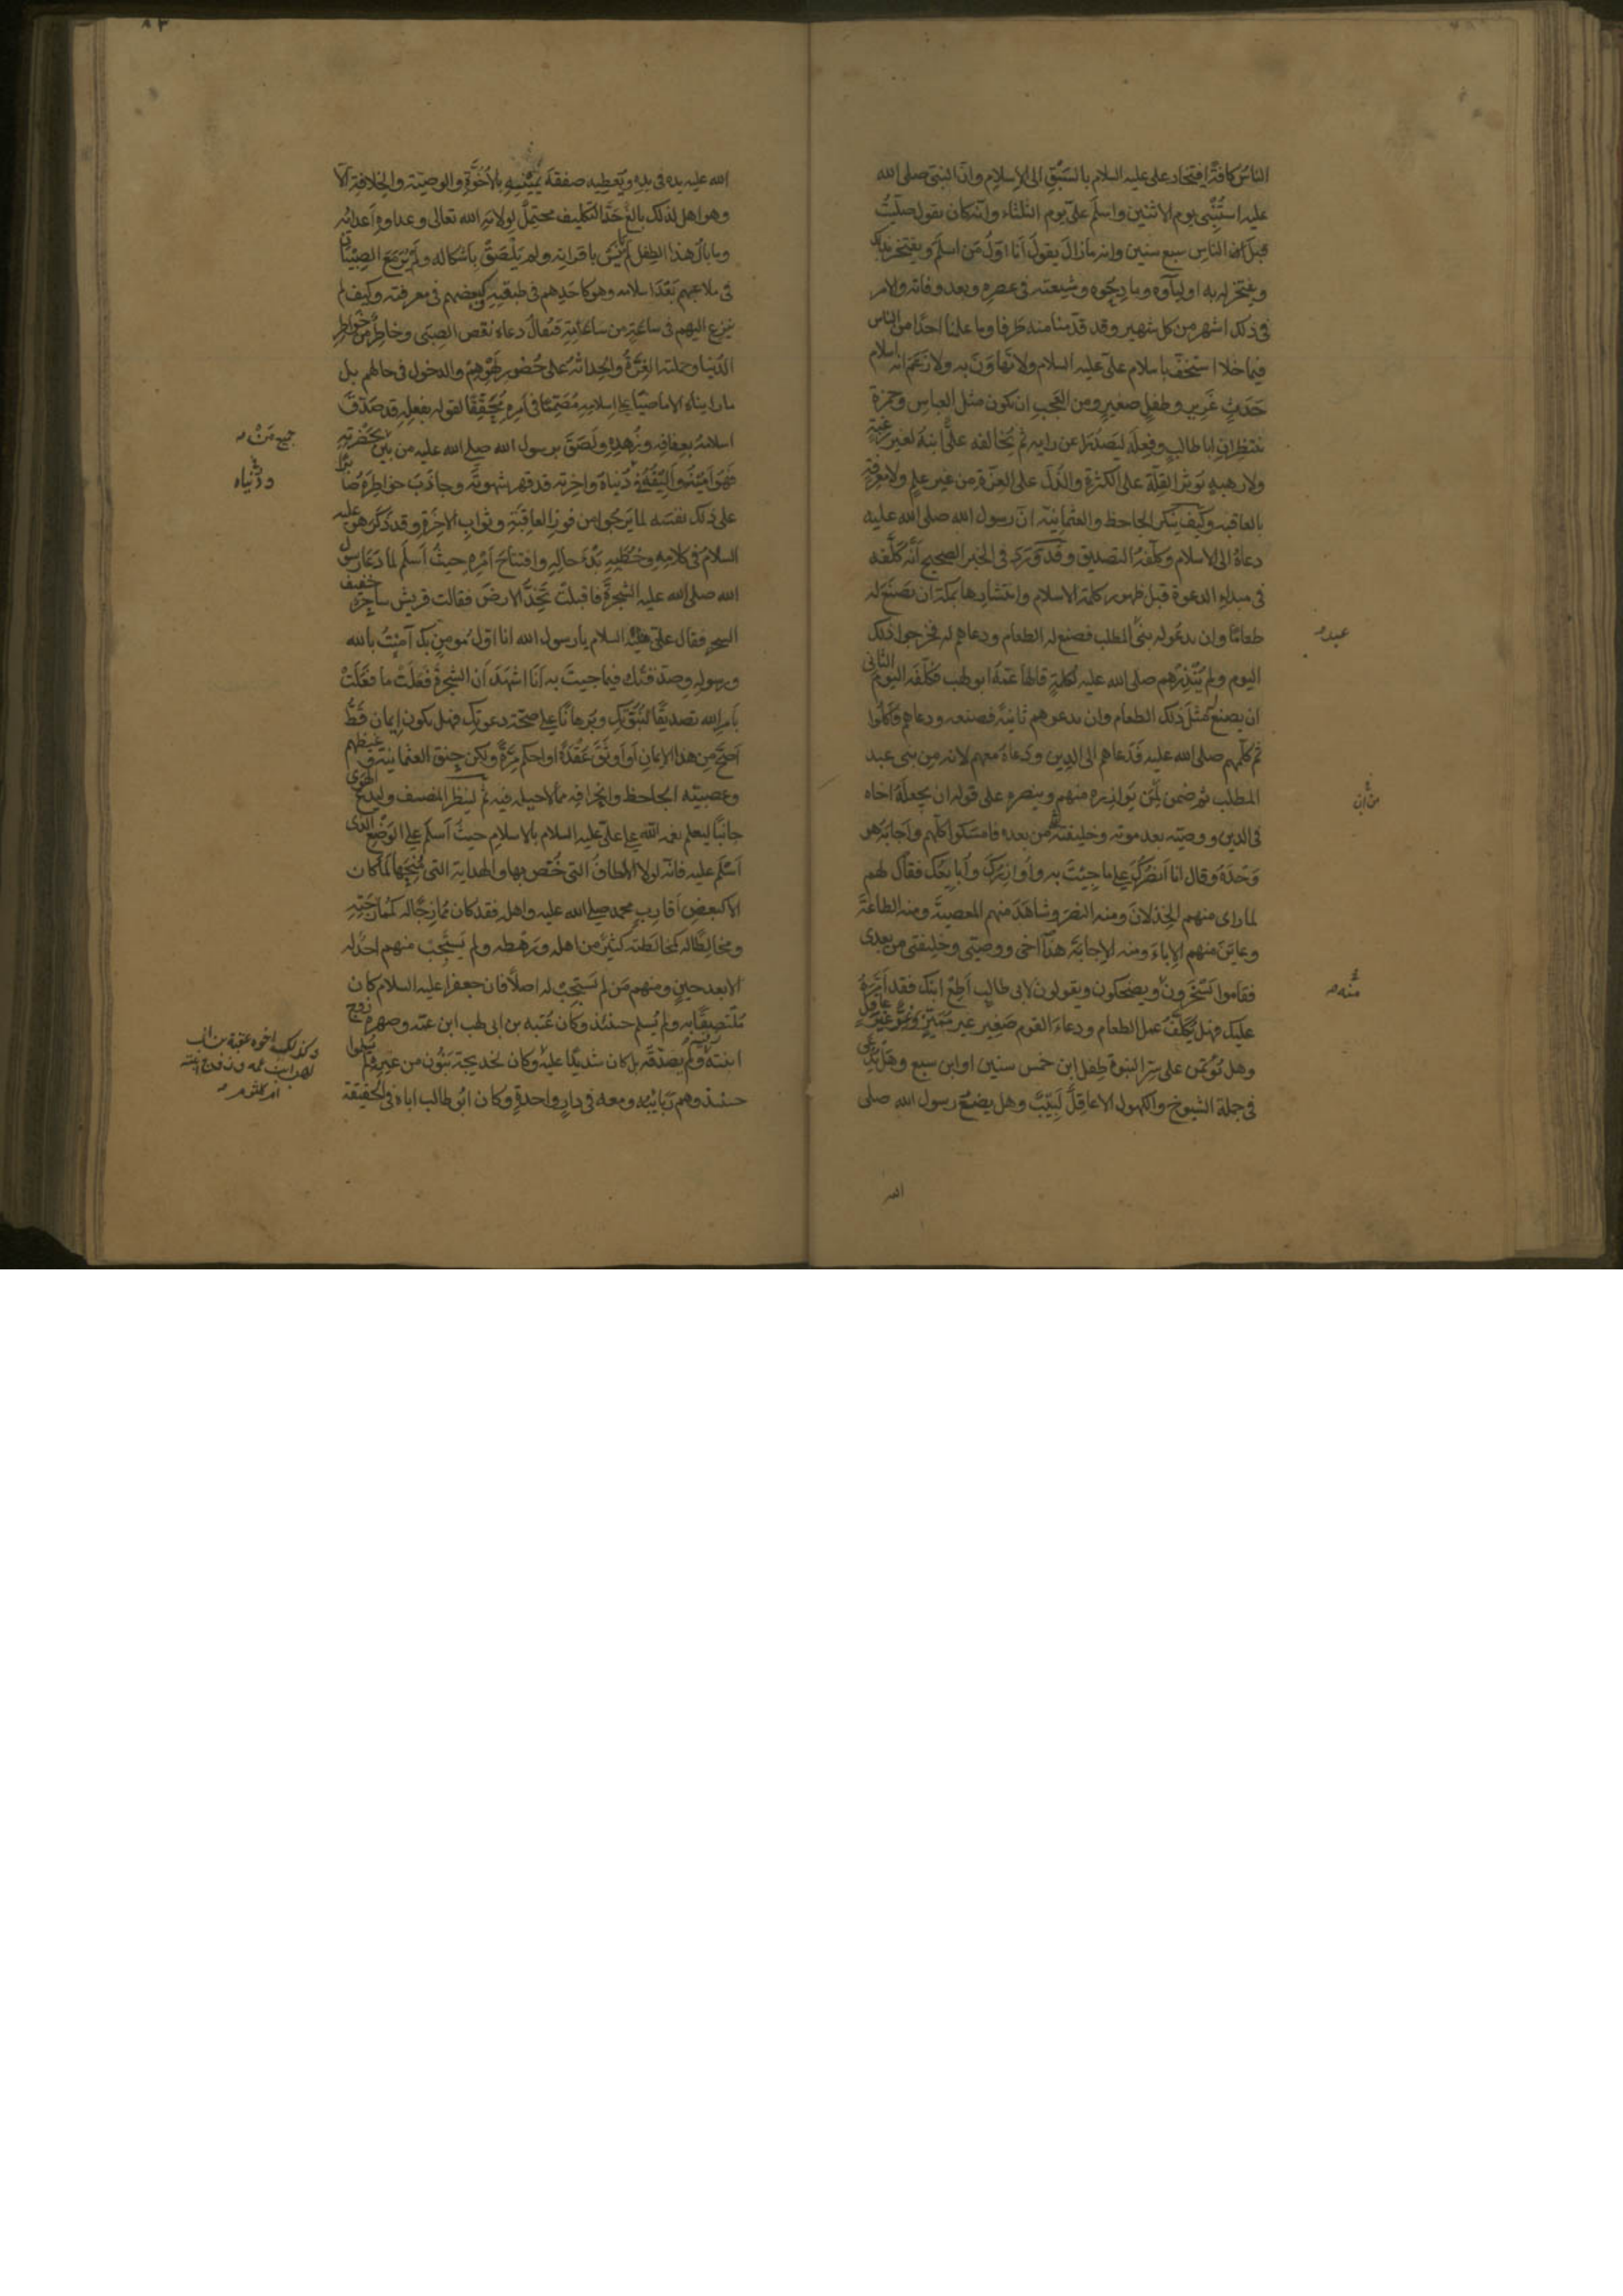 الناس كافة افتخار على عليه السلام بالسبق الى الاسلام وان النبى صلى الله
عليه استنبى يوم الاثنين واسلم على يوم الثلثاء وانه كان يقول صليت
قبل الناس سبع سنين وانه مازال يقول انا اول من اسلم ويفتخر بذلك
ويفتخر له به اولياوه ومادحوه وشيعته فى عصره وبعد وفاته والامر
فى ذلك اشهر من كل شهير وقد قدمنا منه طرفا وما علمنا احدا من الناس
فيما خلا استخف باسلام على عليه السلام ولا تهاون به ولا زعم انه اسلم اسلام
حدث غرير وطفل صغير ومن العجب ان يكون مثل العباس وحمزة
ينتظران ابا طالب وفعله ليصدرا عن رايه ثم يخالفه على ابنه لغير رغبة
ولا رهبة يوثر القلة على الكثرة والذل على العزة من غير علم ولا معرفة
بالعاقبة وكيف ينكر الجاحظ والعثمانية ان رسول الله صلى الله عليه
دعاه الى الاسلام وكلفه التصديق وقد روى فى الخبر الصحيح انه كلفه
فى مبداء الدعوة قبل ظهور كلمة الاسلام وانتشارها بمكة ان يصنع له
طعاما وان يدعو له بنى المطلب فصنع له الطعام ودعاهم له فخرجوا ذلك
عبد
اليوم ولم ينذرهم صلى الله عليه لكلمة قالها عمه ابو لهب فكلفه اليوم الثانى
ان يصنع مثل ذلك الطعام وان يدعوهم ثانية فصنعه ودعاهم فاكلوا
ثم كلمهم صلى الله عليه فدعاهم الى الدين ودعاه معهم لانه من بنى عبد
المطلب ثم ضمن لمن يوازره منهم وينصره على قوله ان يجعله اخاه
فى الدين ووصيه بعد موته وخليفته من بعده فامسكوا كلهم واجابه هو
وحده وقال انا انصرك على ما جيت به واوازرك وابايعك فقال لهم
لما راى منهم الخذلان ومنه النصر وشاهد منهم المعصية ومنه الطاعة
وعاين منهم الاباء ومنه الاجابة هذا اخى ووصيى وخليفتى من بعدى
فقاموا يسخرون ويضحكون ويقولون لابى طالب اطع ابنك فقد امره
عليك فهل يكلف عمل الطعام ودعاء القوم صغير غير مميز وغر غير عاقل
وهل يوتمن على سر النبوة طفل ابن خمس سنين او ابن سبع وهل يدعى
فى جملة الشيوخ والكهول الا عاقل لبيب وهل يضع رسول الله صلى
الله
الله عليه يده فى يده ويعطيه صفقة يمينه بالاخوة والوصية والخلافة الا
وهو اهل لذلك بالغ حد التكليف محتمل لولاية الله تعالى وعداوة اعدائه
وما بال هذا الطفل لم يانس باقرانه ولم يلصق باشكاله ولم ير مع الصبيان
فى ملاعبهم بعد اسلامه وهو كاحدهم فى طبقته كبعضهم فى معرفته وكيف لم
ينزع اليهم فى ساعة من ساعاته فيقال دعاه نقص الصبى وخاطر من خواطر
الدنيا وحملته الغرة والحداثة على حضور لهوهم والدخول فى حالهم بل
ما رايناه الا ماضيا على اسلامه مصمما فى امره محققا لقوله بفعله قد صدق
اسلامه بعفافه وزهده ولصق برسول الله صلى الله عليه من بين بحضرته
جميع من
فهو امينه واليفه فى دنياه واخرته قد قهر شهوته وجاذب خواطره صابرا
على ذلك نفسه لما يرجوا من فوز العاقبة وثواب الاخرة وقد ذكر هو عليه
السلام فى كلامه وخطبه بدء حاله وافتتاح امره حيث اسلم لما دعا رسول
الله صلى الله عليه الشجرة فاقبلت تخد الارض فقالت قريش ساحر خفيف
السحر فقال على عليه السلام يا رسول الله انا اول مومن بك آمنت بالله
ورسوله وصدقتك فيما جيت به انا اشهد ان الشجرة فعلت ما فعلت
بامر الله تصديقا لنبوتك وبرهانا على صحة دعوتك فهل يكون ايمان قط
اصح من هذا الايمان او اوثق عقدة او احكم مرة ولكن حنق العثمانية وغيظهم
وعصبية الجاحظ وانحرافه مما لا حيلة فيه ثم لينظر المنصف وليدع الهوى
جانبا ليعلم نعمة الله على على عليه السلام بالاسلام حيث اسلم على الوضع الذى
اسلم عليه فانه لولا الالطاف التى خص بها والهداية التى منحها لما كان
الا كبعض اقارب محمد صلى الله عليه واهله فقد كان ممازجا له كممازجته
ومخالطا له كمخالطته كثير من اهله ورهطه ولم يستجب منهم احد له
الا بعد حين ومنهم من لم يستجب له اصلا فان جعفرا عليه السلام كان
ملتصقا به ولم يسلم حينئذ وكان عتبة بن ابى لهب ابن عمه وصهره زوج
ابنته ولم يصدقه بل كان شديدا عليه وكان لخديجة بنون من غيره ولم يسلموا
حينئذ وهم ربائبه ومعه فى دار واحدة وكان ابو طالب اباه فى الحقيقة